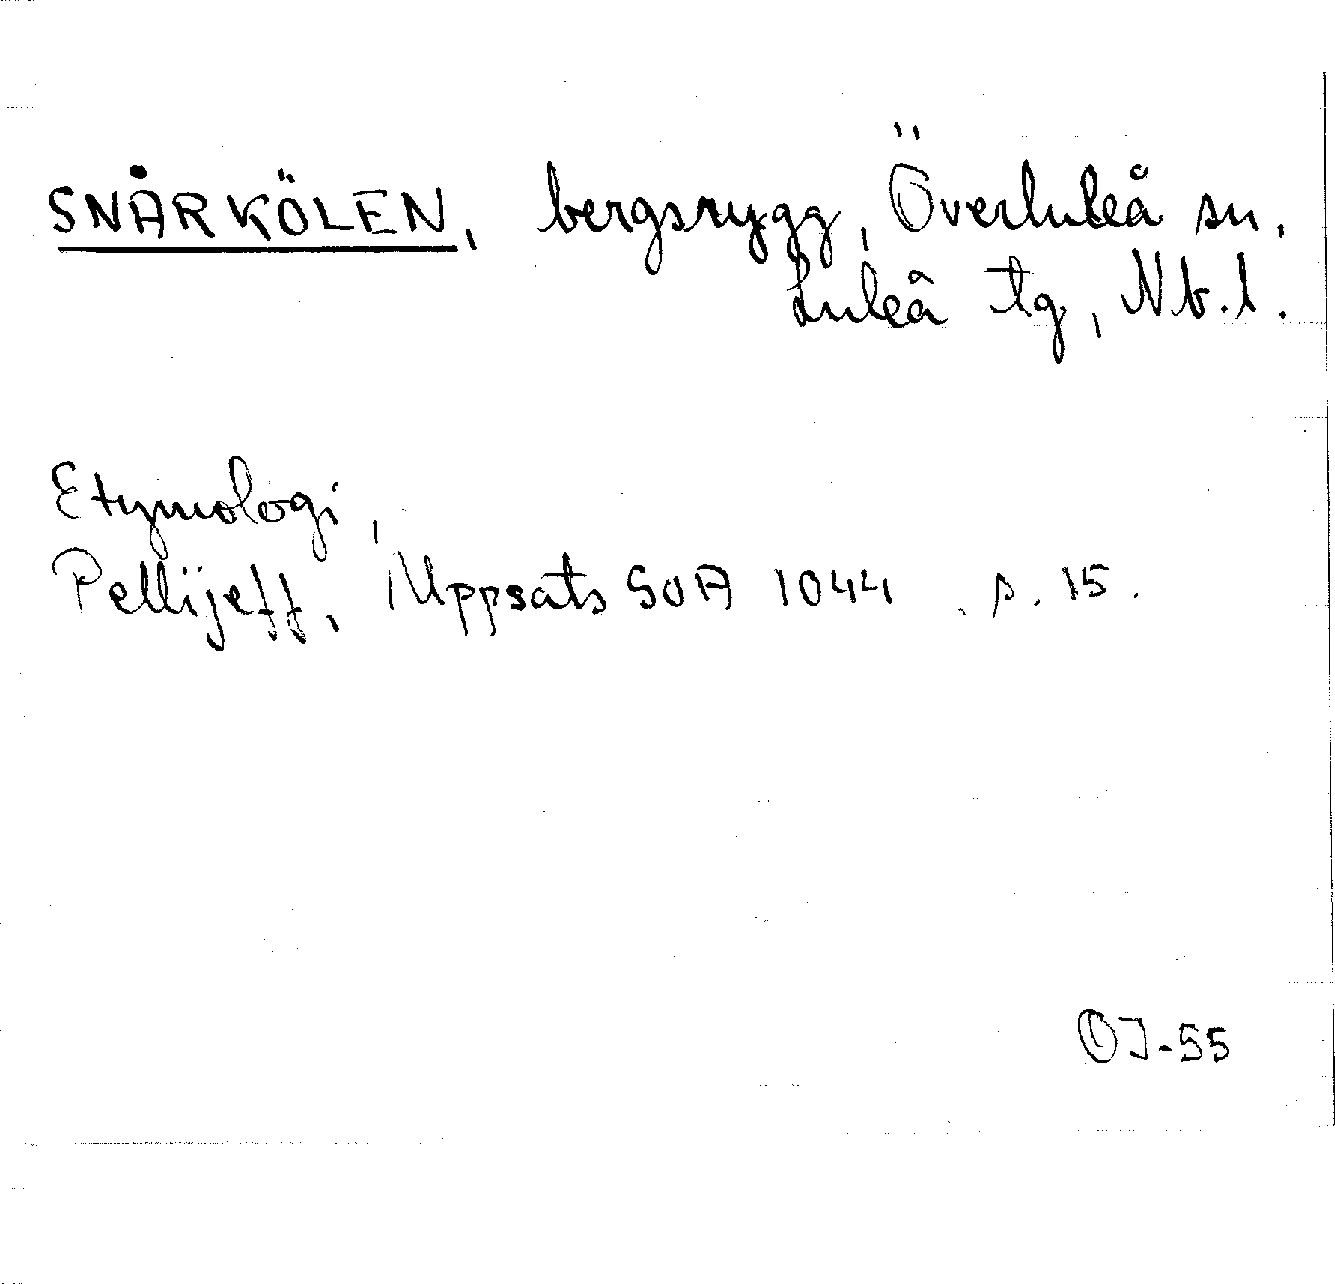 SNÅRKÖLEN, bergsrygg, Överluleå sn.
Luleå tg, Nb.l.
Etymologi,
Pellijeff, Uppsats SOA 1044 . s. 15.
OJ-55